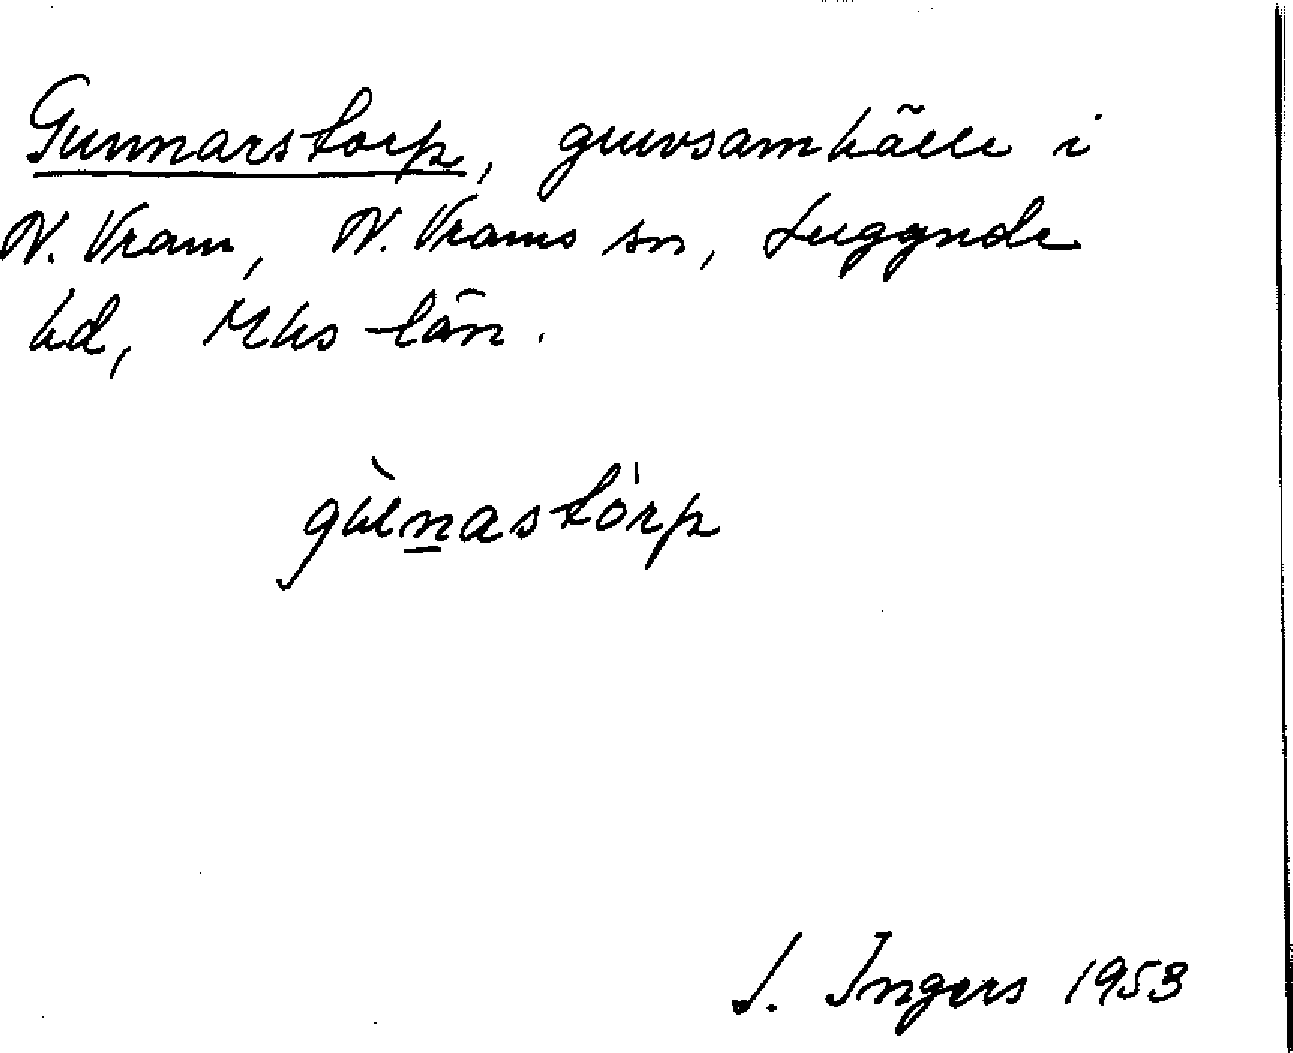 Gunnarstorp, gruvsamhälle i
N. Vram, N. Vrams sn, Luggude
hd, Mhs län.
gùnastórp
I. Ingers 1953